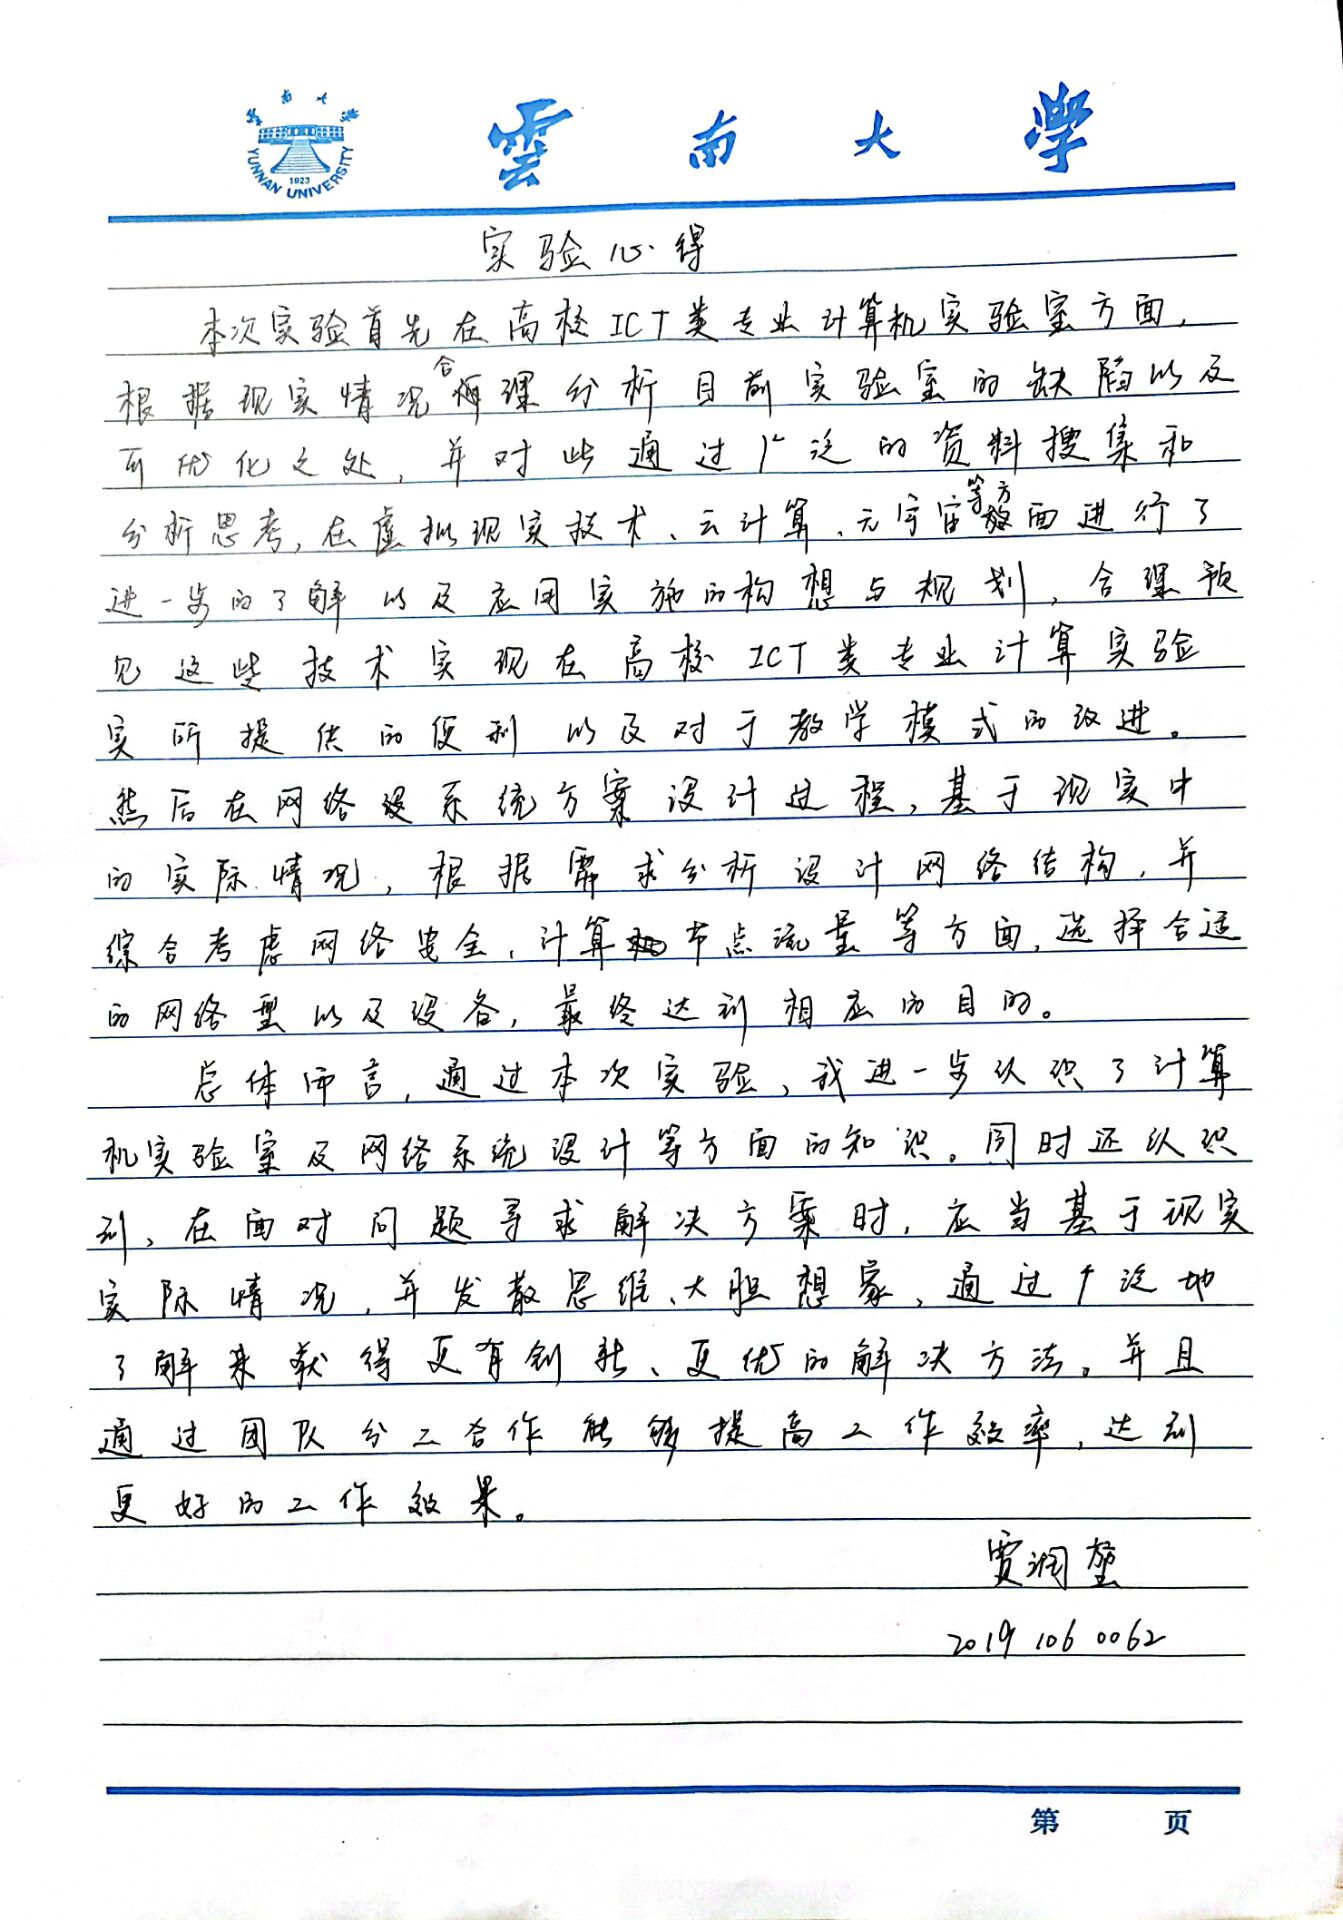 雲南大學
雲南大學
YUNNAN UNIVERSITY
1923
实验心得
本次实验首先在高校ICT类专业计算机实验室方面，
根据现实情况合理分析目前实验室的缺陷以及
可优化之处，并对此通过广泛的资料搜集和
分析思考，在虚拟现实技术、云计算、元宇宙等方面进行了
进一步的了解以及应用实施的构想与规划，合理预
见这些技术实现在高校ICT类专业计算实验
实所提供的便利以及对于教学模式的改进。
然后在网络设系统方案设计过程，基于现实中
的实际情况，根据需求分析设计网络结构，并
综合考虑网络安全，计算节点流量等方面，选择合适
的网络型以及设备，最终达到相应的目的。
总体而言，通过本次实验，我进一步认识了计算
机实验室及网络系统设计等方面的知识。同时还认识
到，在面对问题寻求解决方案时，应当基于现实
实际情况，并发散思维、大胆想象，通过广泛地
了解来获得更有创新、更优的解决方法。并且
通过团队分工合作能够提高工作效率，达到
更好的工作效果。
贾润堃
20191060062
第 页